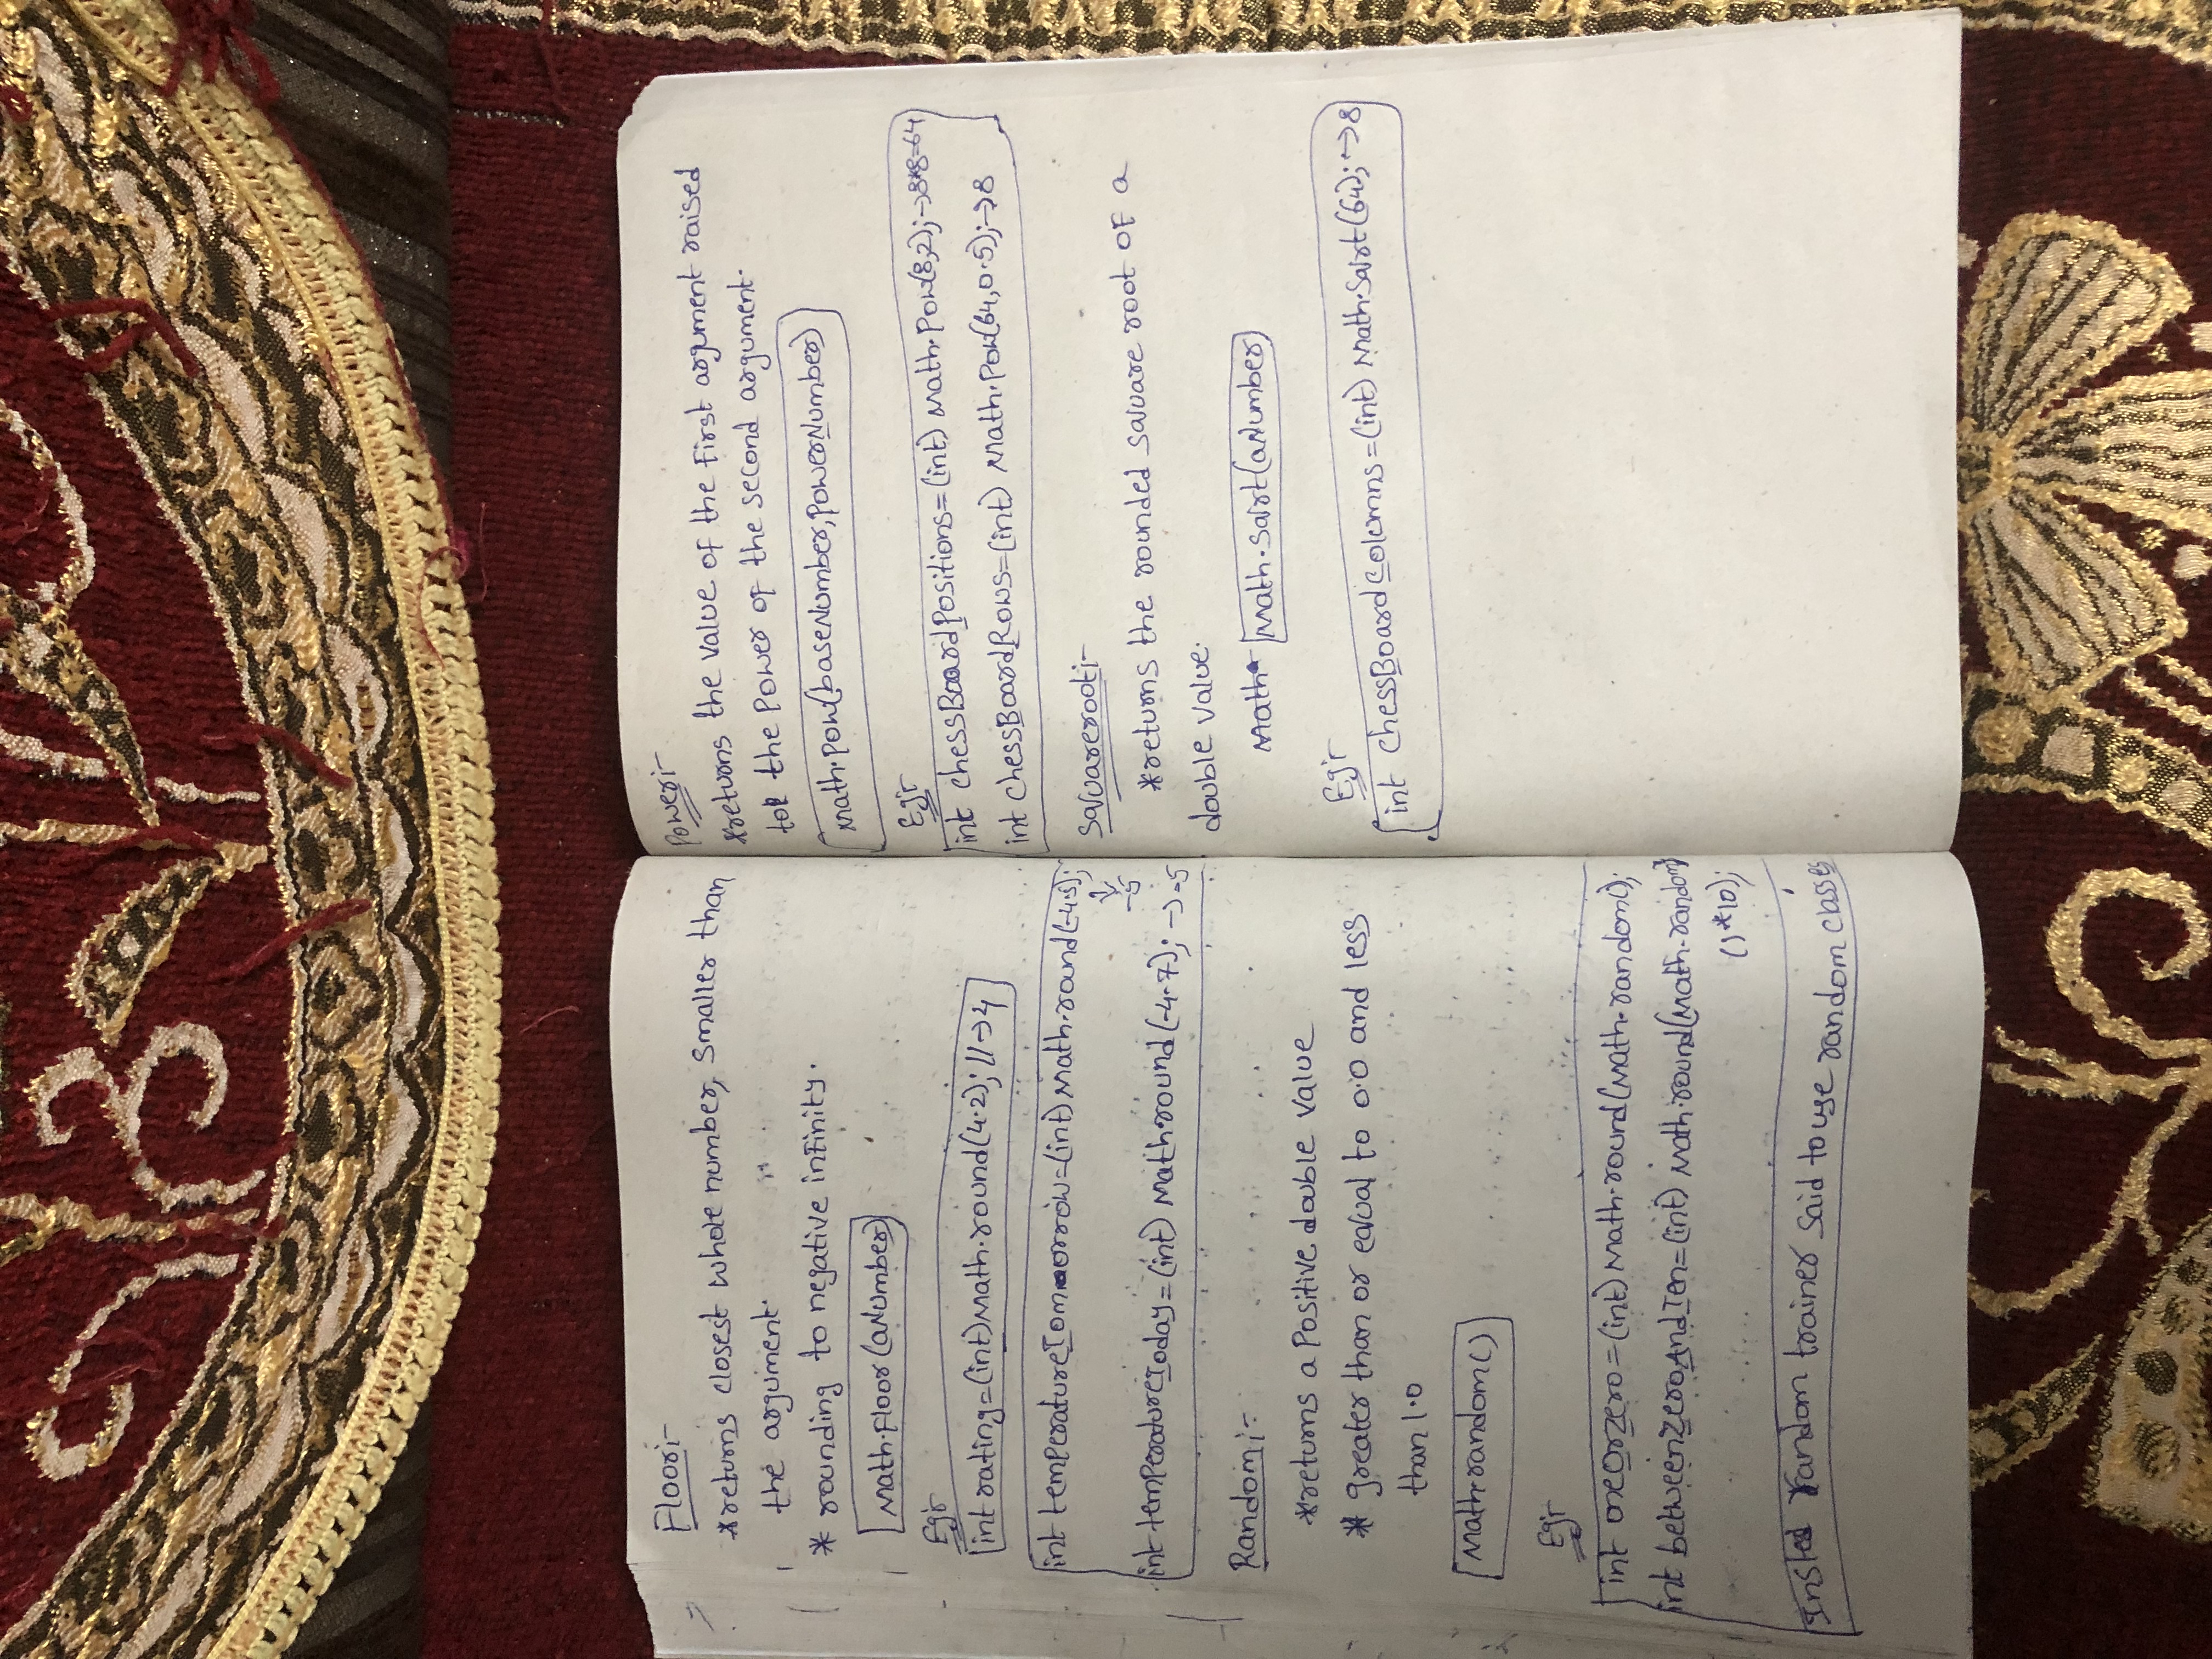 Floor:-
*returns closest whole number, smaller than
the argument.
* rounding to negative infinity.
Math.Floor(aNumber)
Eg:-
int rating=(int)Math.round(4.2); //→4
int temperatureTomorrow=(int)Math.round(-4.5);
→-5
int temperatureToday=(int) Math.round(-4.7); →-5
Random:-
*returns a Positive double value
* greater than or equal to 0.0 and less
than 1.0
Math.random()
Eg:-
int oneOrZero=(int) Math.round(Math.random();
int betweenZeroAndTen=(int) Math.round(Math.random
()*10);
Insted random trainer said to use random classes
Power:-
*returns the value of the First argument raised
to the Power of the second argument.
Math.Pow(baseNumber,PowerNumber)
Eg:-
int chessBoardPositions=(int) Math.Pow(8,2);→8*8=64
int chessBoardRows=(int) Math.Pow(64,0.5);→8
Squareroot:-
*returns the rounded square root of a
double value.
Math. Math.Sqrt(aNumber)
Eg:-
int chessBoardColumns=(int) Math.Sqrt(64);→8